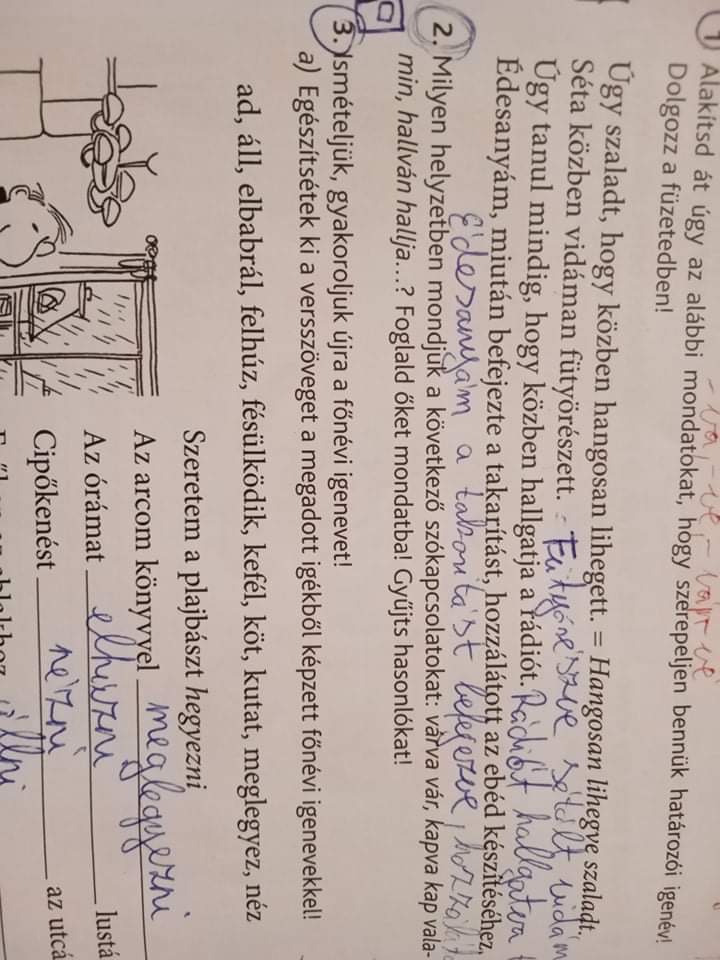 -va, -ve, -ván -vén
1 Alakítsd át úgy az alábbi mondatokat, hogy szerepeljen bennük határozói igenév!
Dolgozz a füzetedben!
Úgy szaladt, hogy közben hangosan lihegett. = Hangosan lihegve szaladt.
Séta közben vidáman fütyörészett. - Fütyörészve sétált vidám
Úgy tanul mindig, hogy közben hallgatja a rádiót. Rádiót hallgatva
Édesanyám, miután befejezte a takarítást, hozzálátott az ebéd készítéséhez.
Édesanyám a takarítást befejezve, hozzálát
2. Milyen helyzetben mondjuk a következő szókapcsolatokat: várva vár, kapva kap vala-
min, hallván hallja...? Foglald őket mondatba! Gyűjts hasonlókat!
3. Ismételjük, gyakoroljuk újra a főnévi igenevet!
a) Egészítsétek ki a versszöveget a megadott igékből képzett főnévi igenevekkel!
ad, áll, elbabrál, felhúz, fésülködik, kefél, köt, kutat, meglegyez, néz
Szeretem a plajbászt hegyezni
Az arcom könyvvel meglegyezni
Az órámat elhúzni lustá
Cipőkenést nézni az utcá
állni